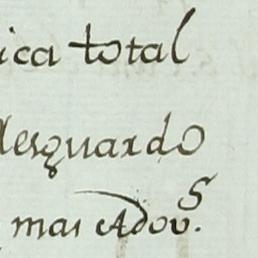 ica total
desguardo
mai eAdov.S